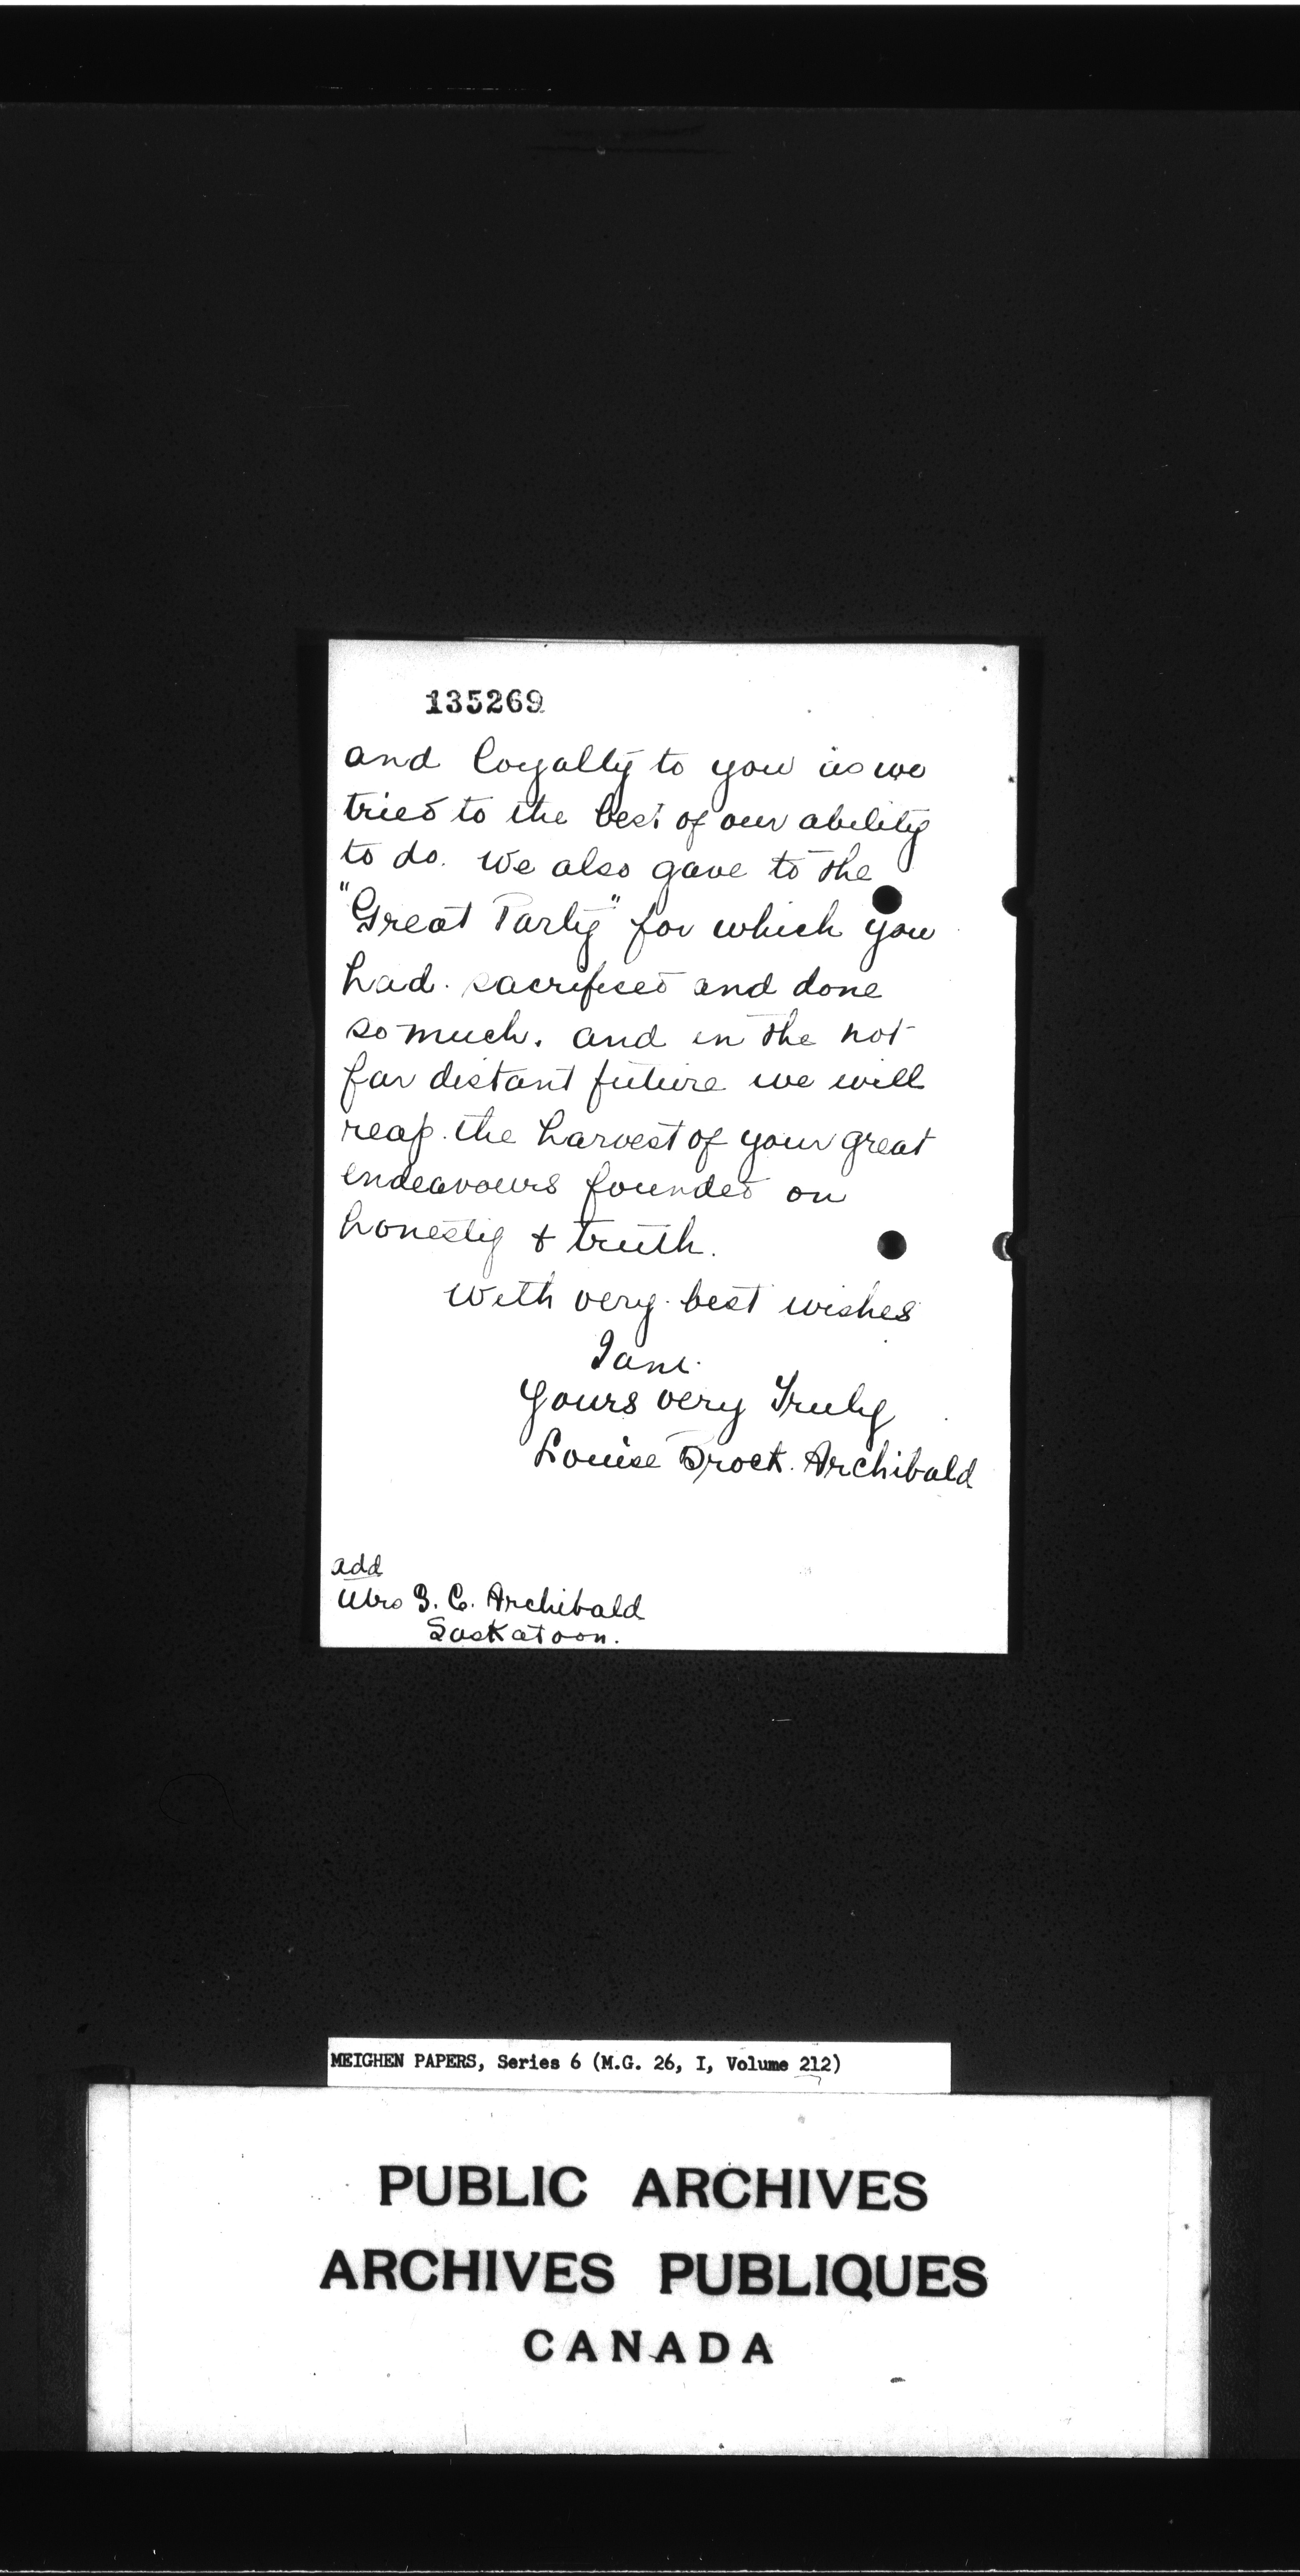 135269
and loyalty to you as we
tried to the best of our ability
to do. We also gave to the
"Great Party" for which you
had sacrificed and done
so much. and in the not
far distant future we will
reap the harvest of your great
endeavours founded on
honesty & truth.
With very best wishes
I am.
Yours very Truly
Louise Brock. Archibald
add
Mrs G. C. Archibald
Saskatoon.
MEIGHEN PAPERS, Series 6 (M.G. 26, I, Volume 212)
PUBLIC ARCHIVES
ARCHIVES PUBLIQUES
CANADA